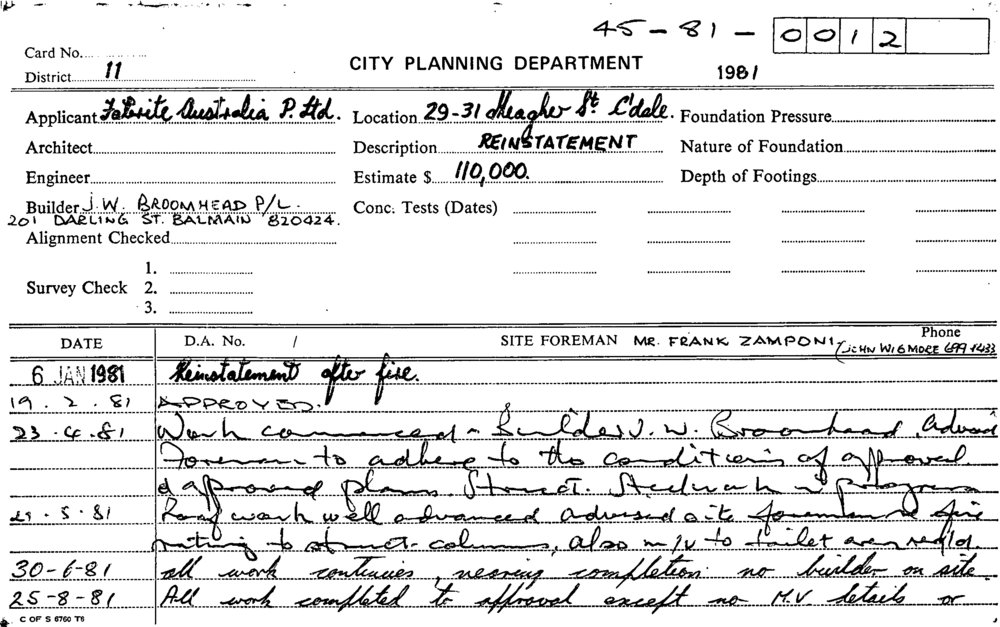 45-81-0012
Card No.
District 11
CITY PLANNING DEPARTMENT
1981
Applicant Australia P. Ltd. Location 29-31 Meagher St C'dale. Foundation Pressure
Architect Description REINSTATEMENT Nature of Foundation
Engineer Estimate $ 110,000. Depth of Footings
Builder J.W. BROOMHEAD P/L. Conc. Tests (Dates)
201 DARLING ST. BALMAIN 820424.
Alignment Checked
1.
Survey Check 2.
3.
DATE D.A. No. / SITE FOREMAN MR. FRANK ZAMPONI Phone
JOHN WIGMORE 699 1433
6 JAN 1981 Reinstatement after fire.
19.2.81 APPROVED.
23.4.81 Work commenced - Builder J.W. Broomhead. Advised
Foreman to adhere to the conditions of approval
& approved plans. Struct. Steelwork in progress
29.5.81 Roof work well advanced advised site foreman re fire
rating to struct. columns, also m/v to toilet area req'd.
30-6-81 all work continues, nearing completion no builder on site.
25-8-81 All work completed to approval except no M.V. details or
C OF S 6760 T6